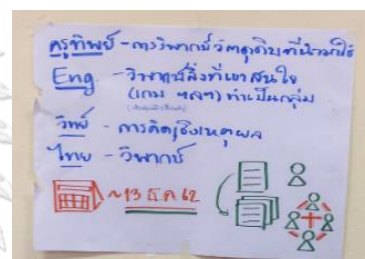 ครูทิพย์ - การวิพากษ์วัตถุดิบที่นำมาใช้
Eng - วิพากษ์สิ่งที่เขาสนใจ
(เกม ฯลฯ) ทำเป็นกลุ่ม
วิทย์ - การคิดเชิงเหตุผล
ไทย - วิพากษ์
~13 ธ.ค. 62